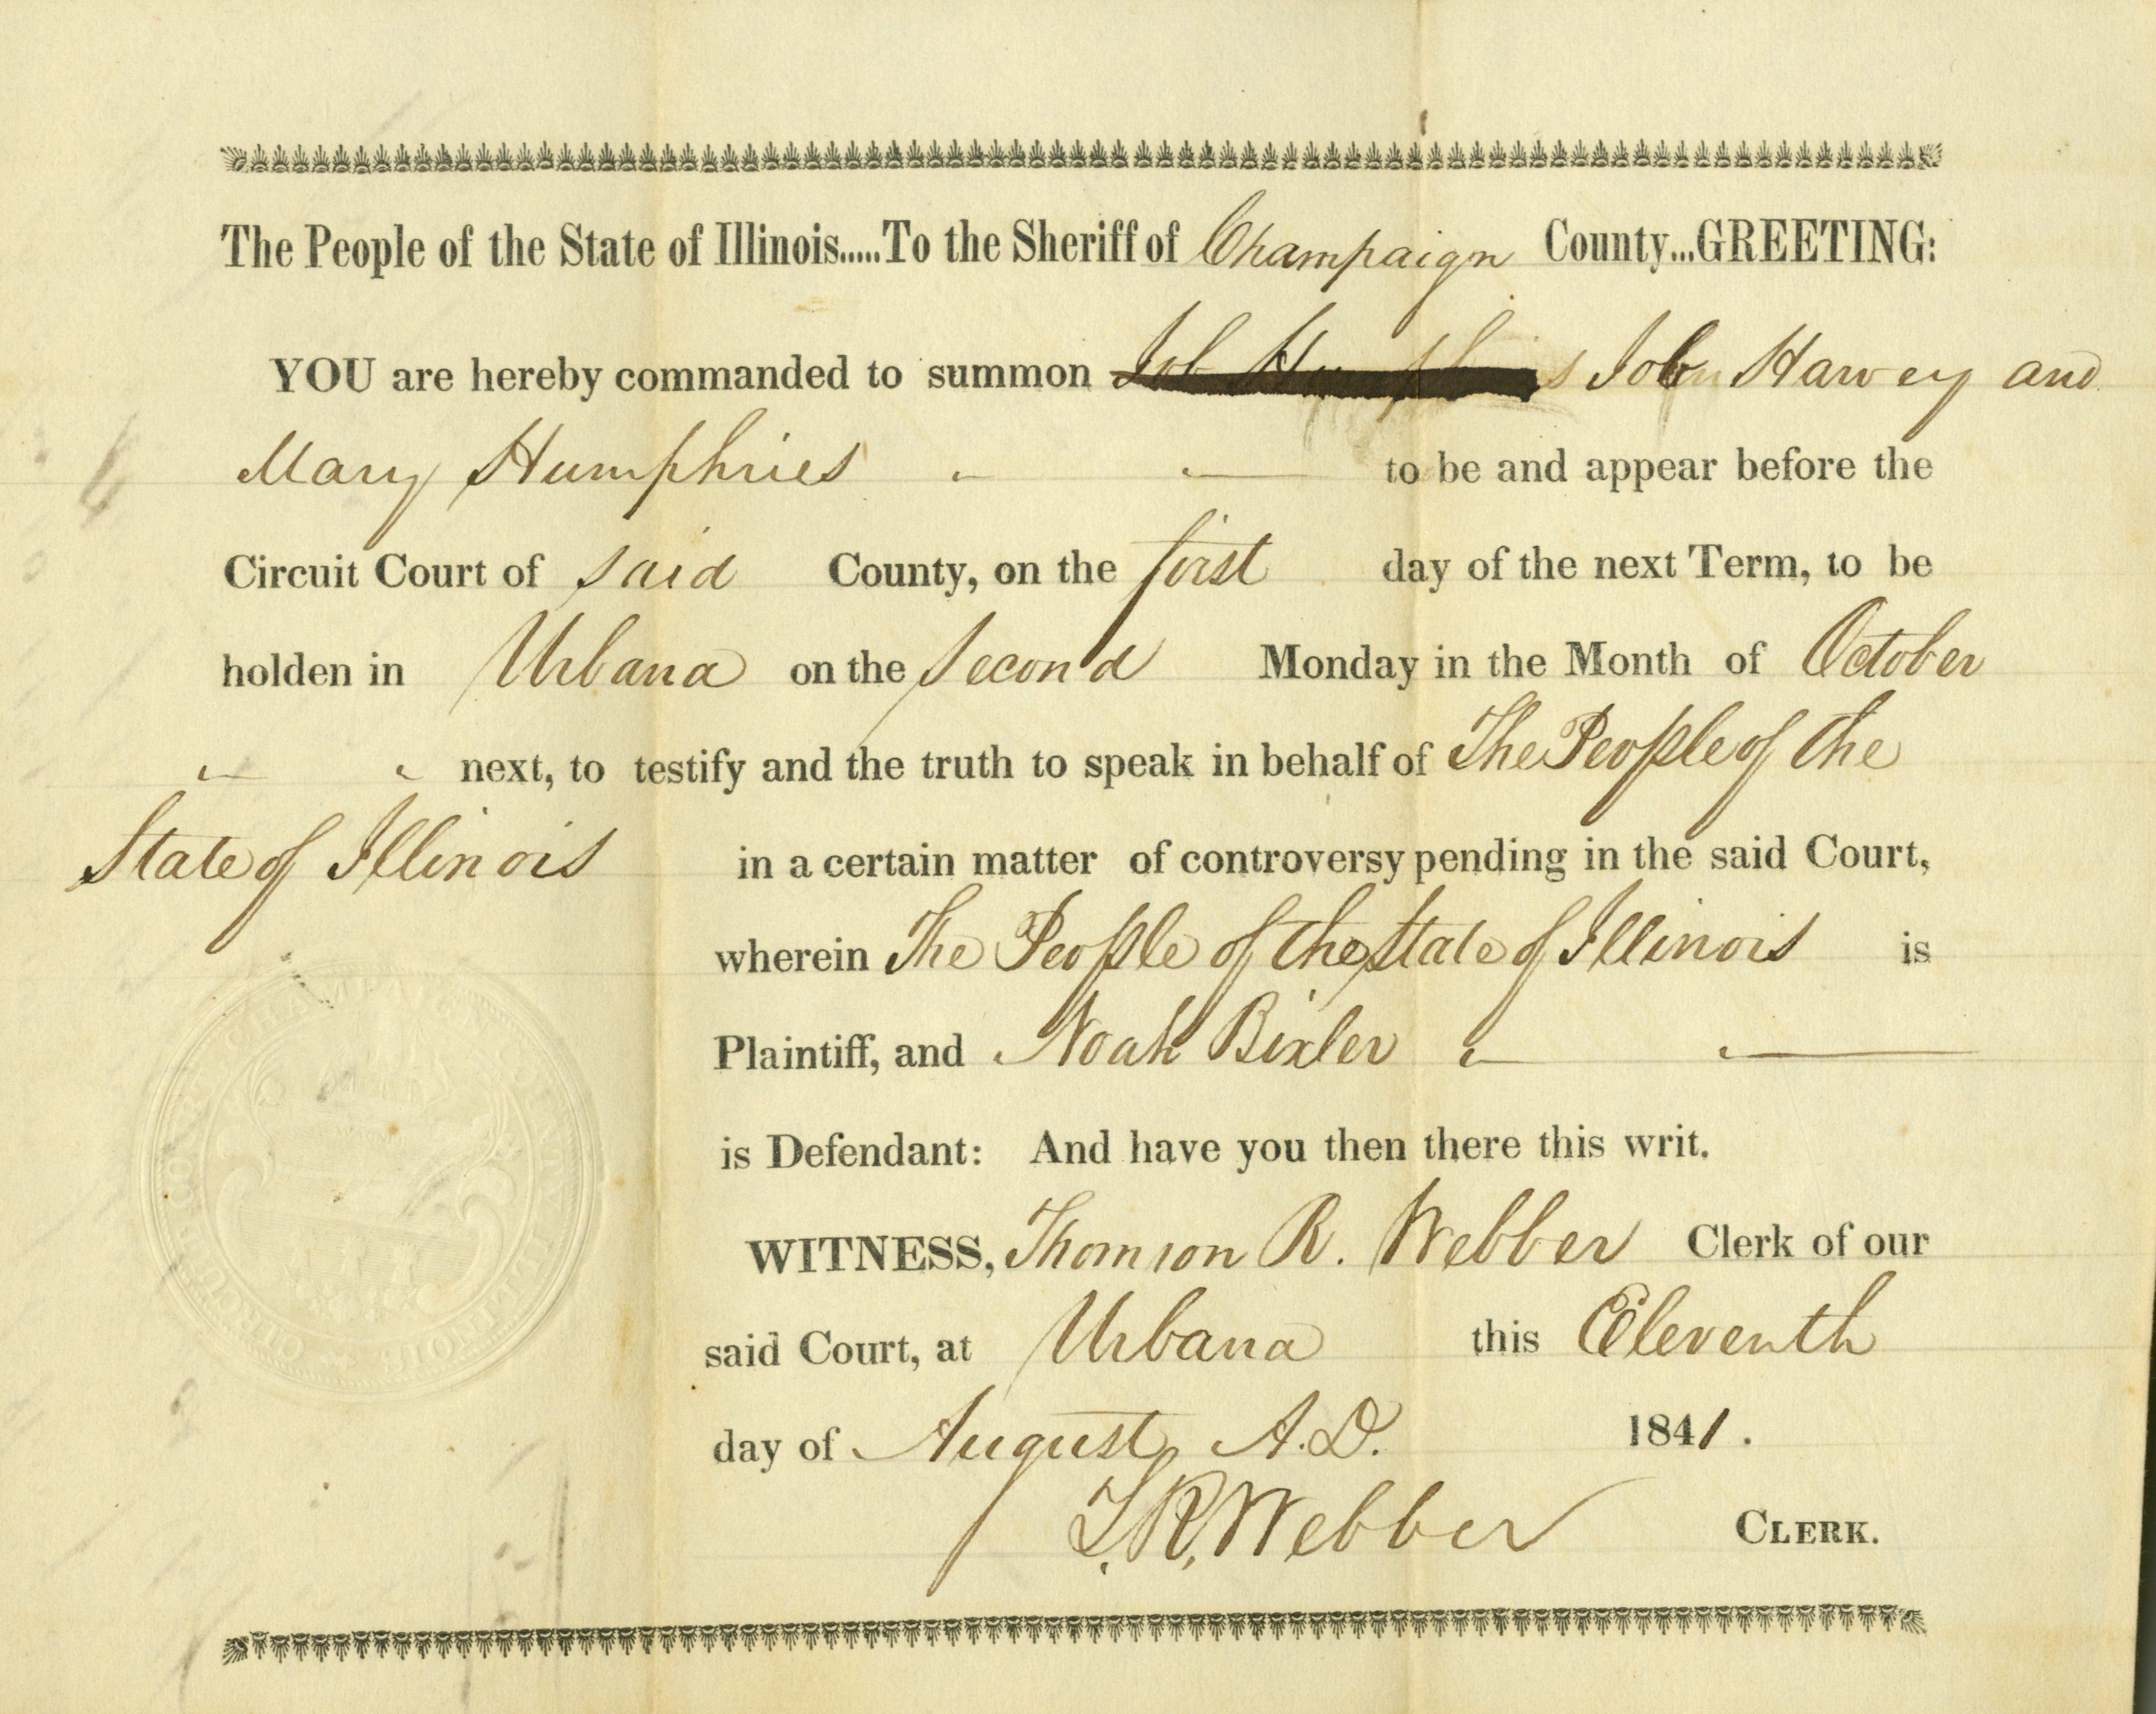 The People of the State of Illinois.....To the Sheriff of Champaign County...GREETING:
YOU are hereby commanded to summon Job Humphries Job Harvey and
Mary Humphries to be and appear before the
Circuit Court of said County, on the first day of the next Term, to be
holden in Urbana on the second Monday in the Month of October
next, to testify and the truth to speak in behalf of The People of the
State of Illinois in a certain matter of controversy pending in the said Court,
wherein The People of the State of Illinois is
Plaintiff, and Noah Bixler
is Defendant: And have you then there this writ.
WITNESS, Thomson R. Webber Clerk of our
said Court, at Urbana this Eleventh
day of August A.D. 1841.
T.R. Webber CLERK.
CIRCUIT COURT CHAMPAIGN COUNTY ILLINOIS